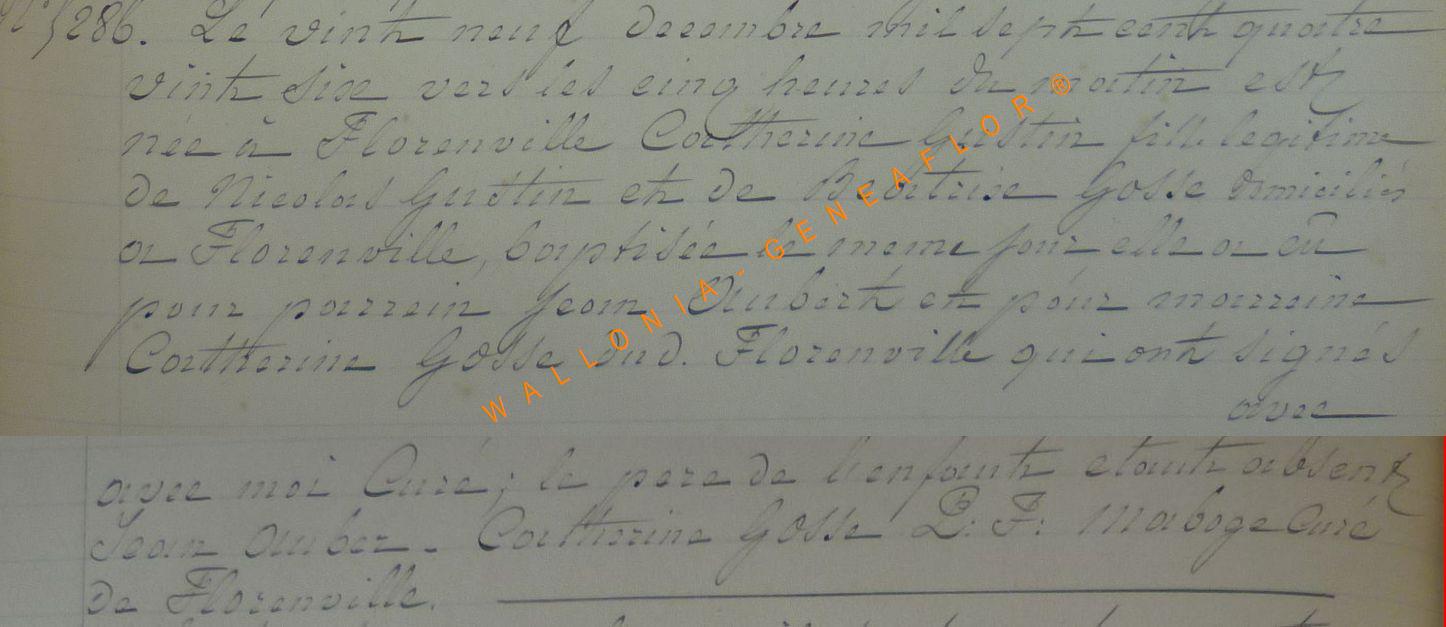 N° 5286. Le vint neuf decembre mil sept cent quatre
vint six vers les cinq heures du matin est
née à Florenville Catherine Gustin fille legitime
de Nicolas Gustin et de Beatrise Gosse domiciliés
a Florenville, baptisée le meme jour elle a eû
pour parrein Jean Aubert et pour marreine
Catherine Gosse dud. Florenville qui ont signés
avec
avec moi Curé; le pere de l'enfant etant absent
Jean Auber. Catherine Gosse P: F: Maboge Curé
de Florenville.
WALLONIA - GENEAFLOR ®